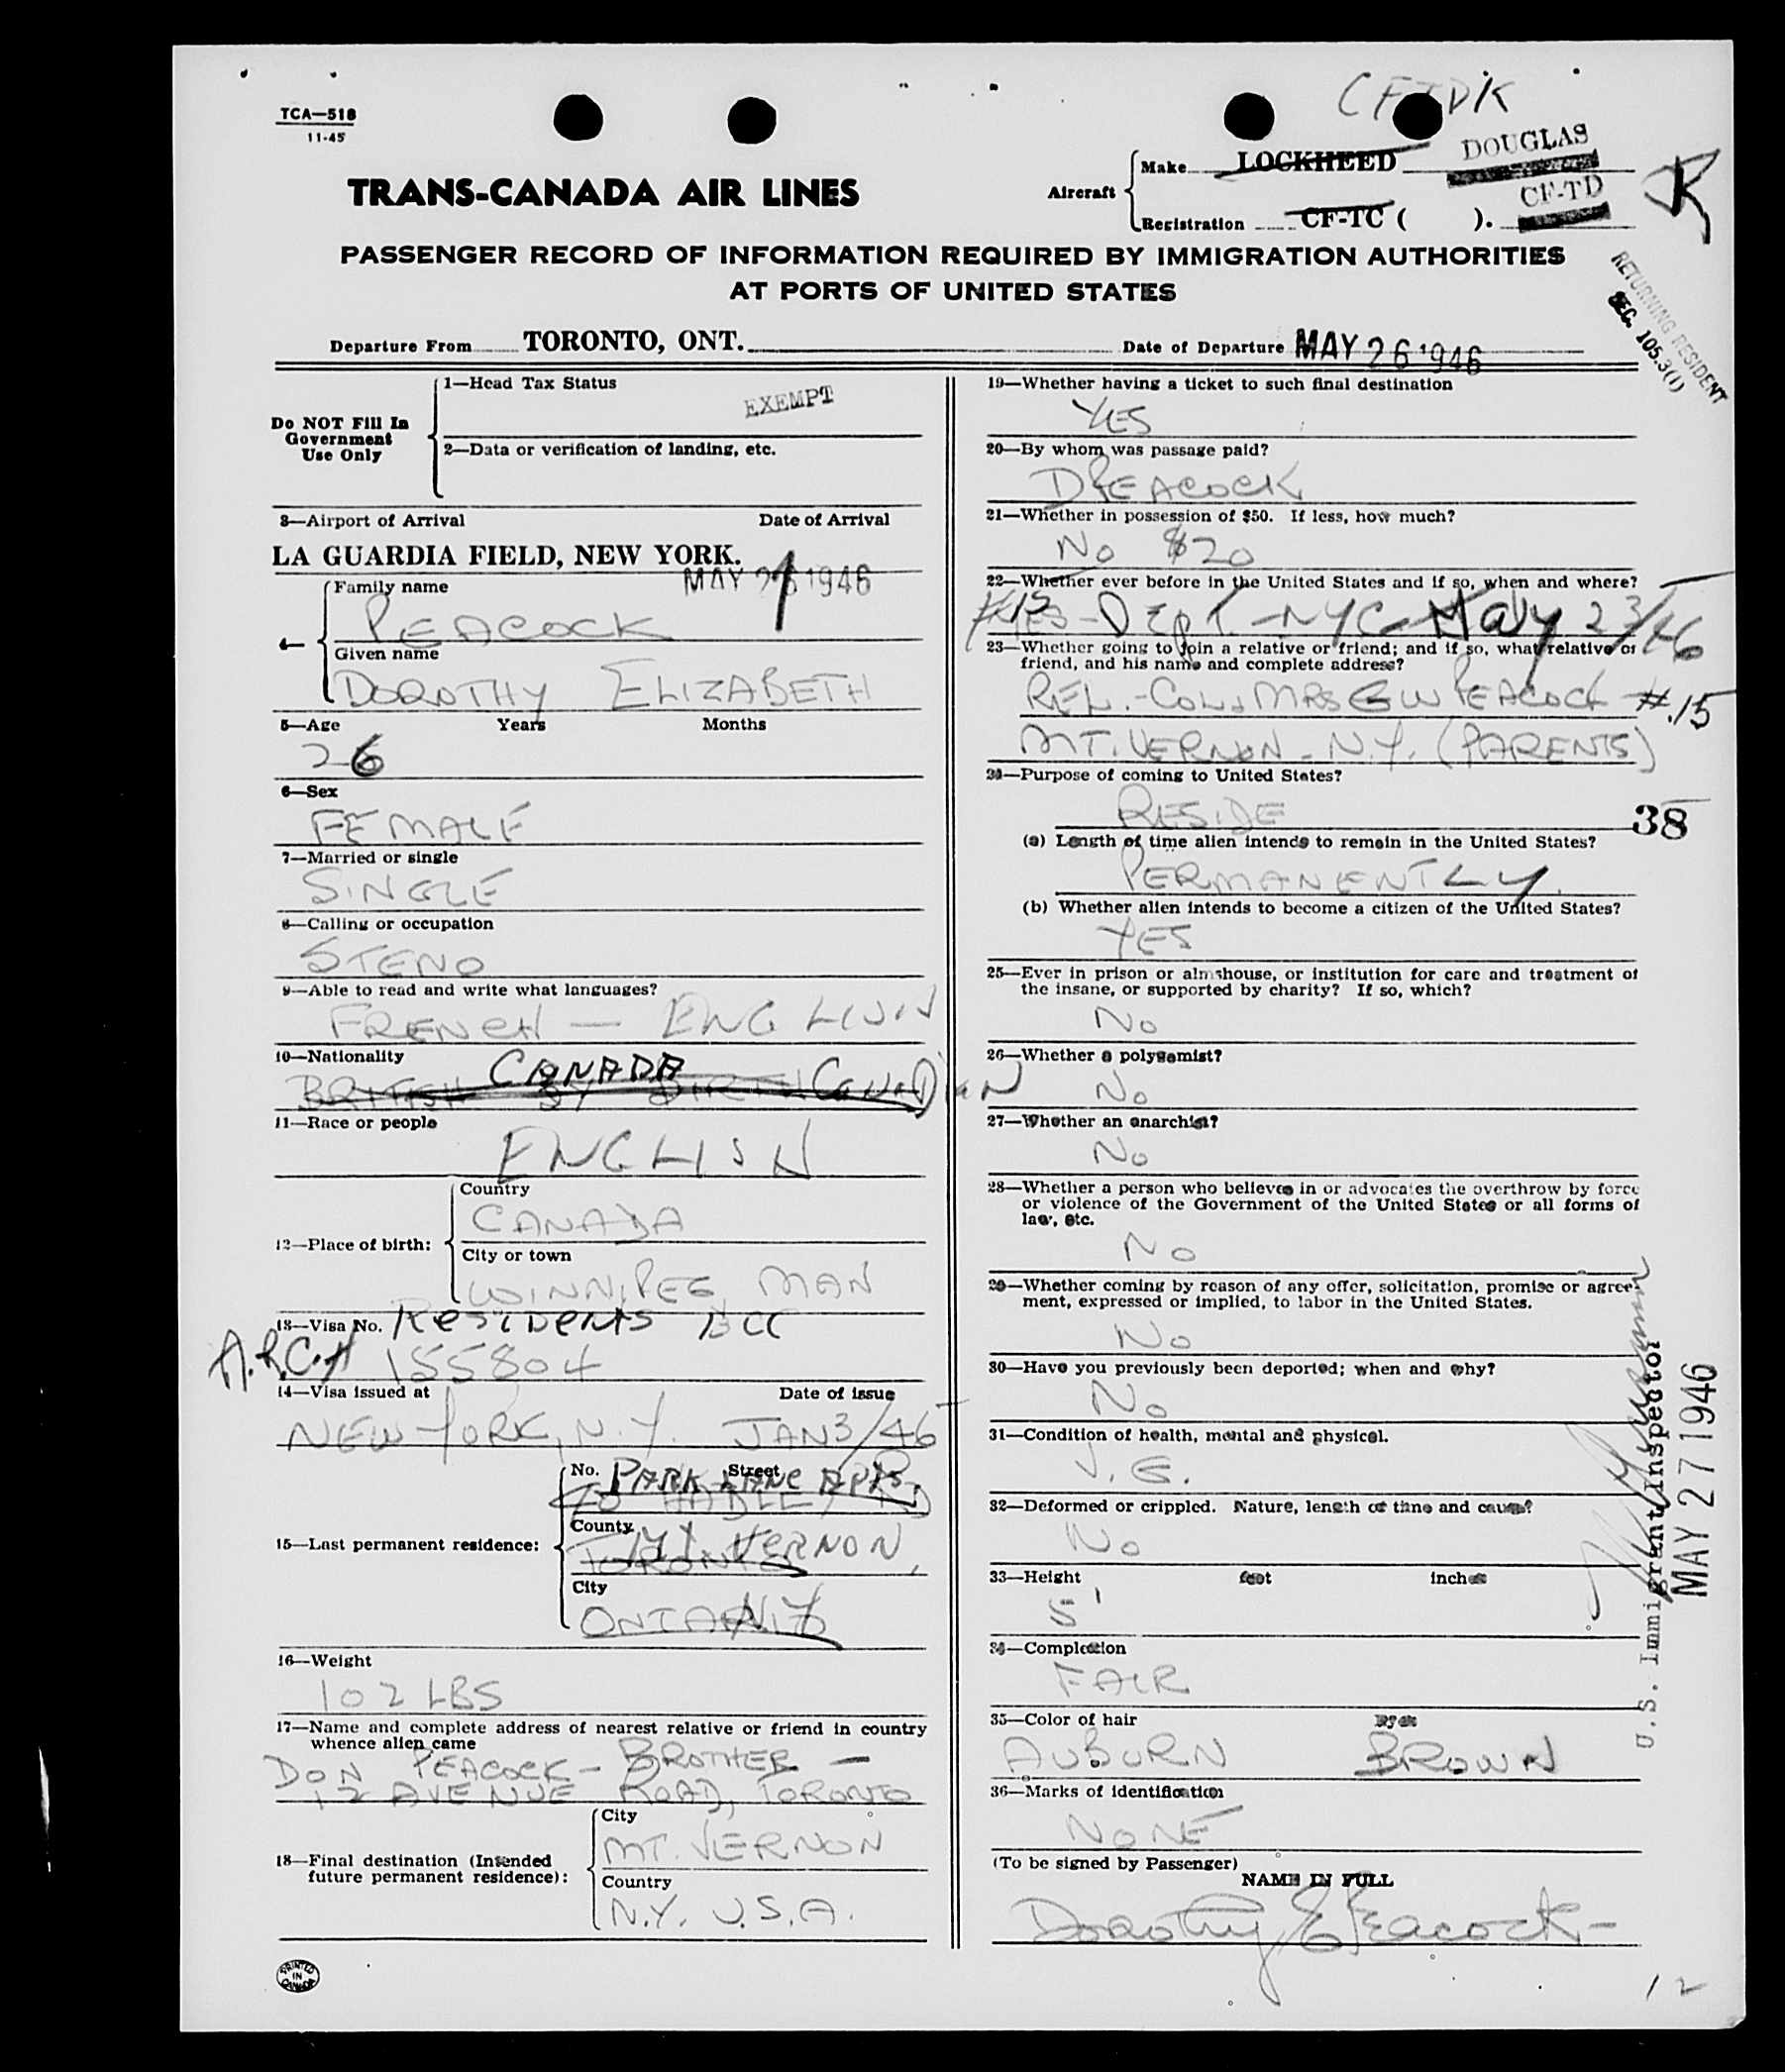 TCA—518
11-45
CF-TDK
TRANS-CANADA AIR LINES
Aircraft
Make LOCKHEED DOUGLAS
Registration CF-TC ( ). CF-TD
PASSENGER RECORD OF INFORMATION REQUIRED BY IMMIGRATION AUTHORITIES
AT PORTS OF UNITED STATES
RETURNING RESIDENT
SEC. 105.3(1)
Departure From TORONTO, ONT.
Date of Departure MAY 26 1946
Do NOT Fill In
Government
Use Only
1—Head Tax Status
EXEMPT
2—Data or verification of landing, etc.
3—Airport of Arrival Date of Arrival
LA GUARDIA FIELD, NEW YORK.
MAY 26 1946
4—
Family name
PEACOCK
Given name
DOROTHY ELIZABETH
5—Age Years Months
26
6—Sex
FEMALE
7—Married or single
SINGLE
8—Calling or occupation
STENO
9—Able to read and write what languages?
FRENCH — ENGLISH
10—Nationality
CANADA
BRITISH BY BIRTH CANADIAN
11—Race or people
ENGLISH
12—Place of birth:
Country
CANADA
City or town
WINNIPEG, MAN
13—Visa No. RESIDENTS BCC
A.R.C.# 155804
14—Visa issued at Date of issue
NEW YORK, N.Y. JAN 3/46
15—Last permanent residence:
No. Street
PARK LANE APTS.
County
MT. VERNON,
TORONTO
City
N.Y.
ONTARIO
16—Weight
102 LBS
17—Name and complete address of nearest relative or friend in country
whence alien came
DON PEACOCK - BROTHER -
12 AVENUE ROAD, TORONTO
18—Final destination (Intended
future permanent residence):
City
MT. VERNON
Country
N.Y. U.S.A.
PRINTED
IN
CANADA
19—Whether having a ticket to such final destination
YES
20—By whom was passage paid?
D PEACOCK
21—Whether in possession of $50. If less, how much?
No $20
22—Whether ever before in the United States and if so, when and where?
YES - DEPT - NYC - May 23/46
23—Whether going to join a relative or friend; and if so, what relative or
friend, and his name and complete address?
REL. - COL. & MRS G W PEACOCK #15
MT. VERNON - N.Y. (PARENTS)
24—Purpose of coming to United States?
RESIDE
38
(a) Length of time alien intends to remain in the United States?
PERMANENTLY.
(b) Whether alien intends to become a citizen of the United States?
YES
25—Ever in prison or almshouse, or institution for care and treatment of
the insane, or supported by charity? If so, which?
No
26—Whether a polygamist?
No
27—Whether an anarchist?
No
28—Whether a person who believes in or advocates the overthrow by force
or violence of the Government of the United States or all forms of
law, etc.
No
29—Whether coming by reason of any offer, solicitation, promise or agree-
ment, expressed or implied, to labor in the United States.
No
30—Have you previously been deported; when and why?
No
31—Condition of health, mental and physical.
V. G.
32—Deformed or crippled. Nature, length of time and cause?
No
33—Height feet inches
5'
34—Complexion
FAIR
35—Color of hair Eyes
AUBURN BROWN
36—Marks of identification
NONE
(To be signed by Passenger)
NAME IN FULL
Dorothy E Peacock
U.S. Immigrant Inspector
MAY 27 1946
12